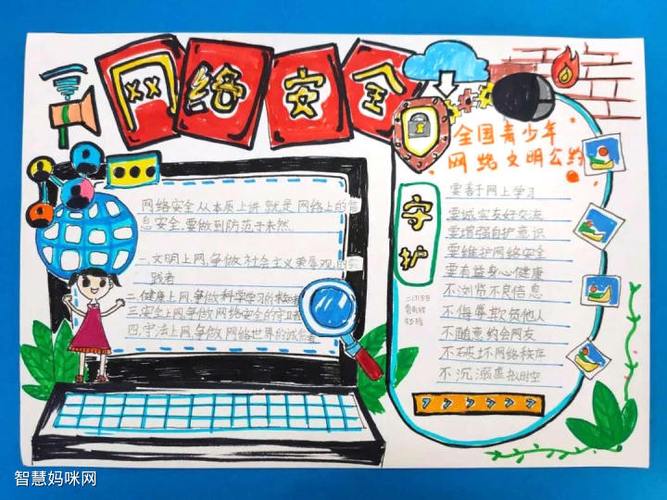 网络安全
全国青少年
网络文明公约
网络安全从本质上讲就是网络上的信
息安全.要做到防范于未然.
一.文明上网,争做社会主义荣辱观的实
践者
二.健康上网,争做科学学习的
三.安全上网,争做网络安全的守卫者
四.守法上网,争做网络世界的诚信者
守护
要善于网上学习
要诚实友好交流
要增强自护意识
要维护网络安全
要有益身心健康
不浏览不良信息
不侮辱欺负他人
不随意约会网友
不破坏网络秩序
不沉溺虚拟时空
智慧妈咪网